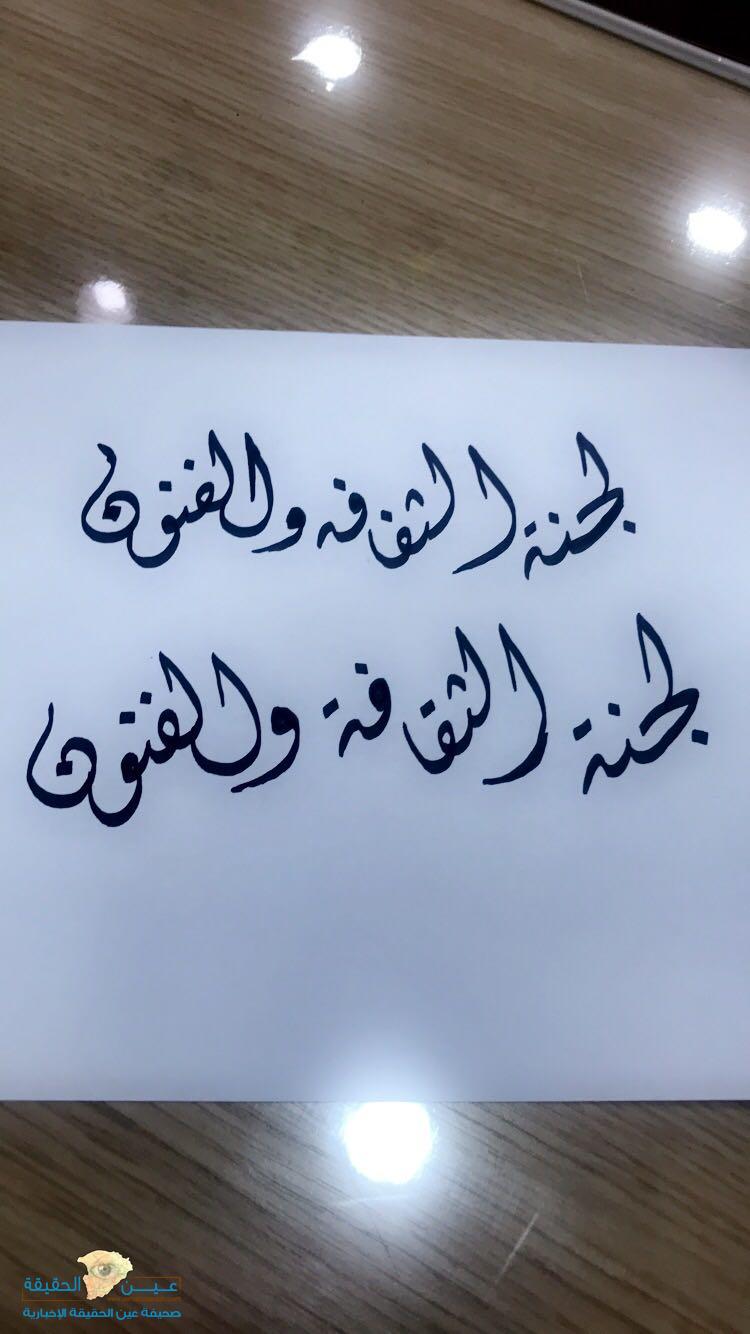 لجنة الثقافه والفنون
لجنة الثقافة والفنون
عين الحقيقة
صحيفة عين الحقيقة الإخبارية